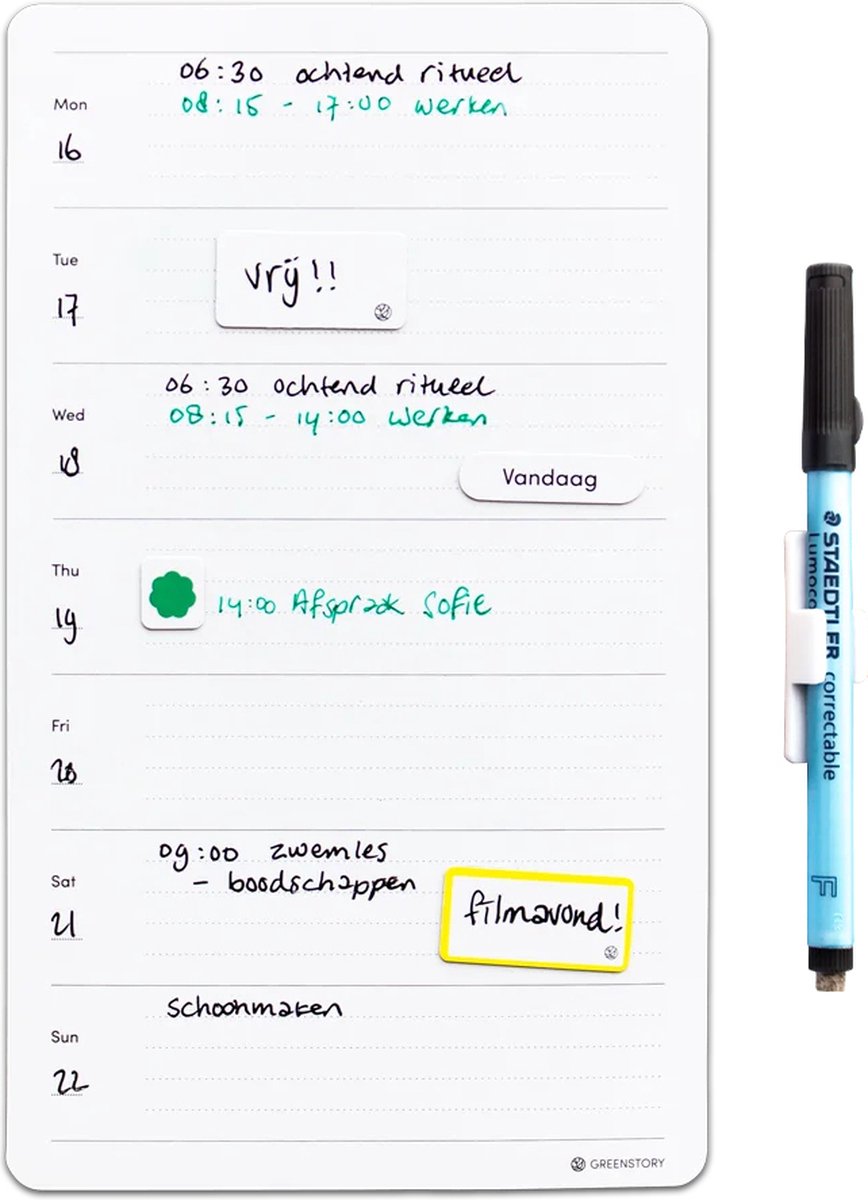 06:30 ochtend ritueel
08:15 - 17:00 werken
Mon
16
Tue
vrij!!
17
06:30 ochtend ritueel
08:15 - 14:00 werken
Wed
18
Vandaag
Thu
14:00 Afspraak Sofie
19
Fri
20
09:00 zwemles
- boodschappen
Sat
filmavond!
21
schoonmaken
Sun
22
GREENSTORY
STAEDTLER
Lumoco
correctable
F